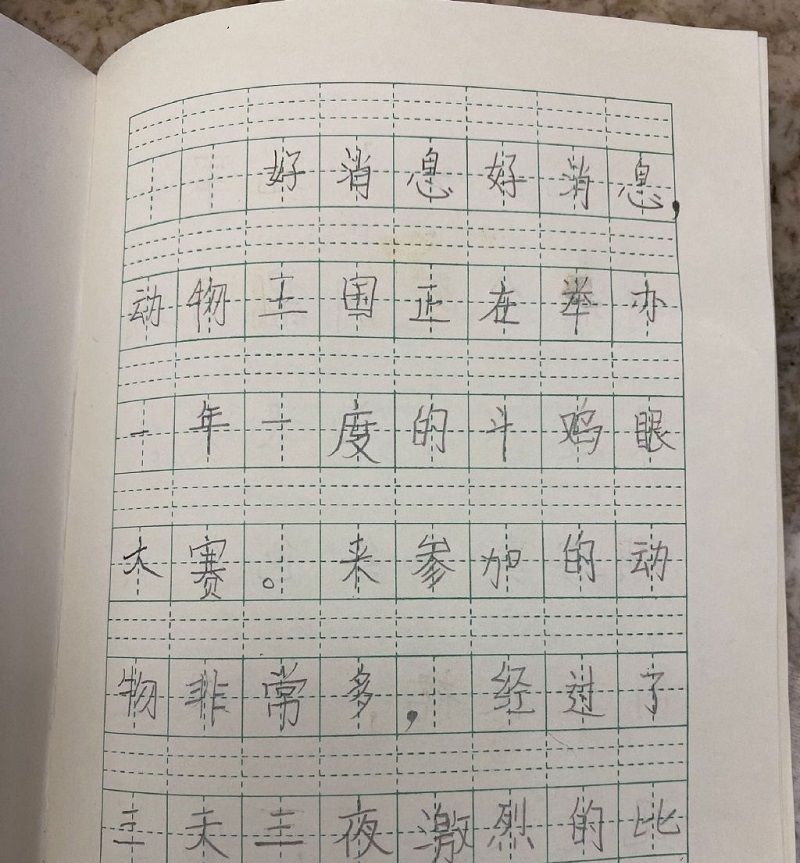 好消息好消息，
动物王国正在举办
一年一度的斗鸡眼
大赛。来参加的动
物非常多，经过了
三天三夜激烈的比